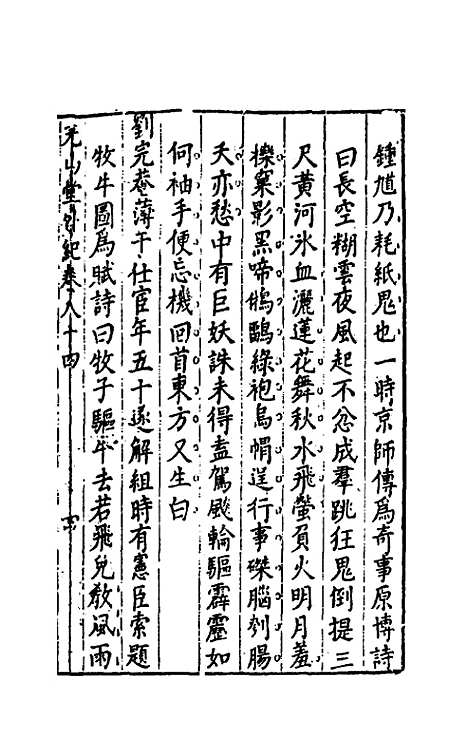 鍾馗乃耗紙鬼也一時京師傳爲奇事原博詩
曰長空糊雲夜風起不忿成羣跳狂鬼倒提三
尺黃河氷血灑蓮花舞秋水飛螢負火明月羞
櫟窠影黑啼鵂鶹綠袍烏帽逞行事磔腦刳腸
天亦愁中有巨妖誅未得盍駕飈輪驅霹靂如
何袖手便忘機回首東方又生白
劉完菴薄于仕宦年五十遂解組時有憲臣索題
牧牛圖爲賦詩曰牧子驅牛去若飛免敎風雨
堯山堂外紀卷八十四